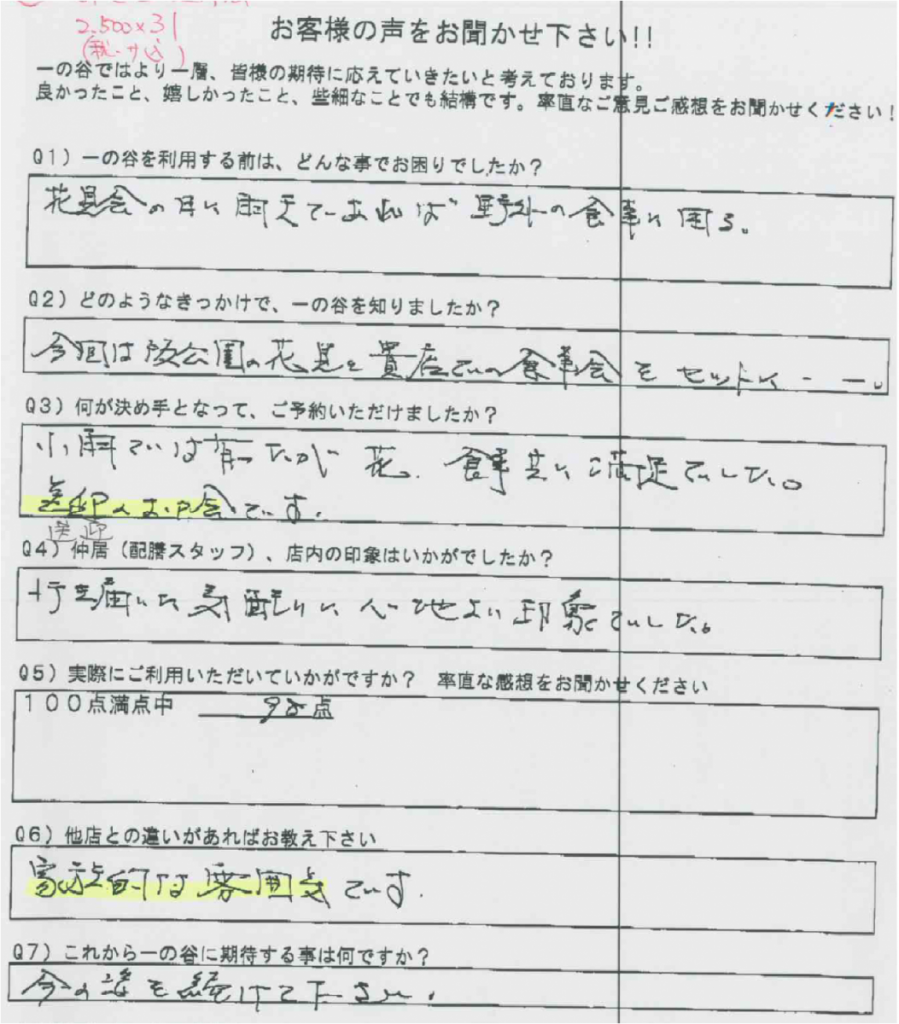 2.500×31
(税サ込)
お客様の声をお聞かせ下さい!!
一の谷ではより一層、皆様の期待に応えていきたいと考えております。
良かったこと、嬉しかったこと、些細なことでも結構です。率直なご意見ご感想をお聞かせください!
Q1)一の谷を利用する前は、どんな事でお困りでしたか?
花見会の日に雨天であれば野外の食事に困る。
Q2)どのようなきっかけで、一の谷を知りましたか?
今回は阪公園の花見と貴店での食事会をセットに・ー。
Q3)何が決め手となって、ご予約いただけましたか?
小雨では有ったが花、食事共に満足でした。
送迎
Q4)仲居(配膳スタッフ)、店内の印象はいかがでしたか?
行き届いた気配りに心地よい印象でした。
Q5)実際にご利用いただいていかがですか? 率直な感想をお聞かせください
100点満点中 98点
Q6)他店との違いがあればお教え下さい
家族的な雰囲気です。
Q7)これから一の谷に期待する事は何ですか?
今の姿を続けて下さい。